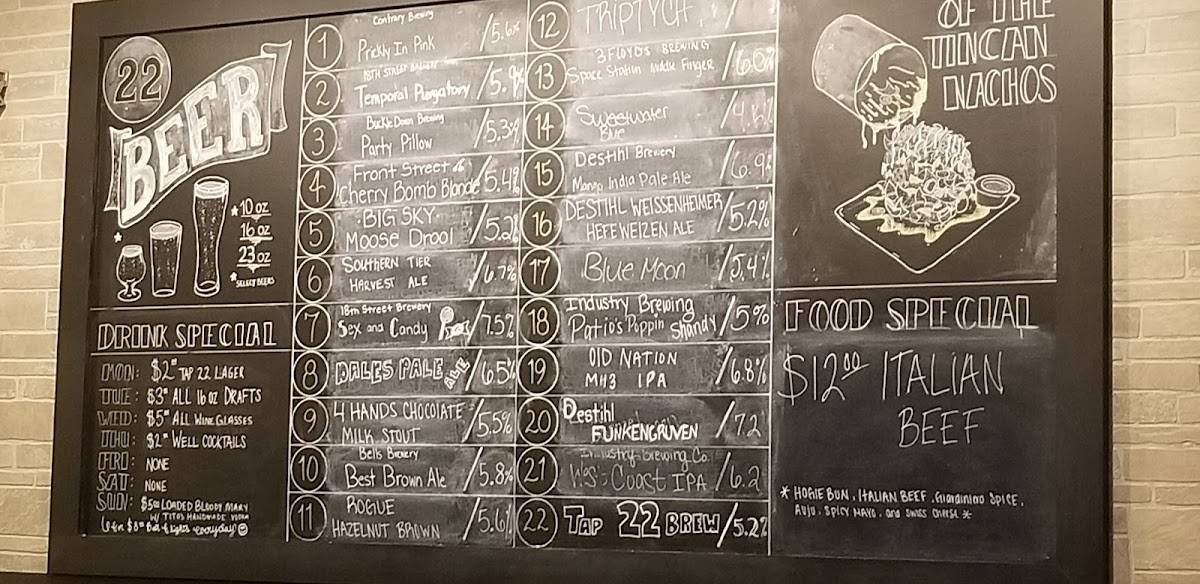 22
BEER
*10 oz
16 oz
23 oz
*SELECT BEERS
DRINK SPECIAL
MON: $2 TAP 22 LAGER
TUE: $3 ALL 16 oz DRAFTS
WED: $5 ALL WINE GLASSES
THU: $2 WELL COCKTAILS
FRI: NONE
SAT: NONE
SUN: $5 LOADED BLOODY MARY
W/ TITOS HANDMADE VODKA
everyday!
Contrary Brewing
1 Prickly In Pink /5.6%
18TH STREET
2 Temporal Purgatory /5.9%
Buckle Down Brewing
3 Party Pillow /5.3%
Front Street
4 Cherry Bomb Blonde /5.4%
BIG SKY
5 Moose Drool /5.2%
SOUTHERN TIER
6 HARVEST ALE /6.7%
18th Street Brewery
7 Sex and Candy /7.5%
8 DALES PALE ALE /6.5%
9 4 HANDS CHOCOLATE /5.5%
MILK STOUT
Bells Brewery
10 Best Brown Ale /5.8%
ROGUE
11 HAZELNUT BROWN /5.6%
12 TRIPTYCH
3 FLOYDS BREWING
13 Space Station Middle Finger /6.0%
14 Sweetwater
Blue
Destihl Brewery
15 Mango India Pale Ale /6.9%
16 DESTIHL WEISSENHEIMER /5.2%
HEFEWEIZEN ALE
17 Blue Moon /5.4%
Industry Brewing
18 Patio's Poppin Shandy /5%
OLD NATION
19 M43 IPA /6.8%
Destihl
20 FUNKENGRUVEN /7.2
Industry Brewing Co.
21 West Coast IPA /6.2
22 TAP 22 BREW /5.2%
OF THE
TINCAN
NACHOS
FOOD SPECIAL
$12.00 ITALIAN
BEEF
* HOGIE BUN, ITALIAN BEEF, Giardiniera SPICE,
AUJU, SPICY MAYO, and SWISS CHEESE *